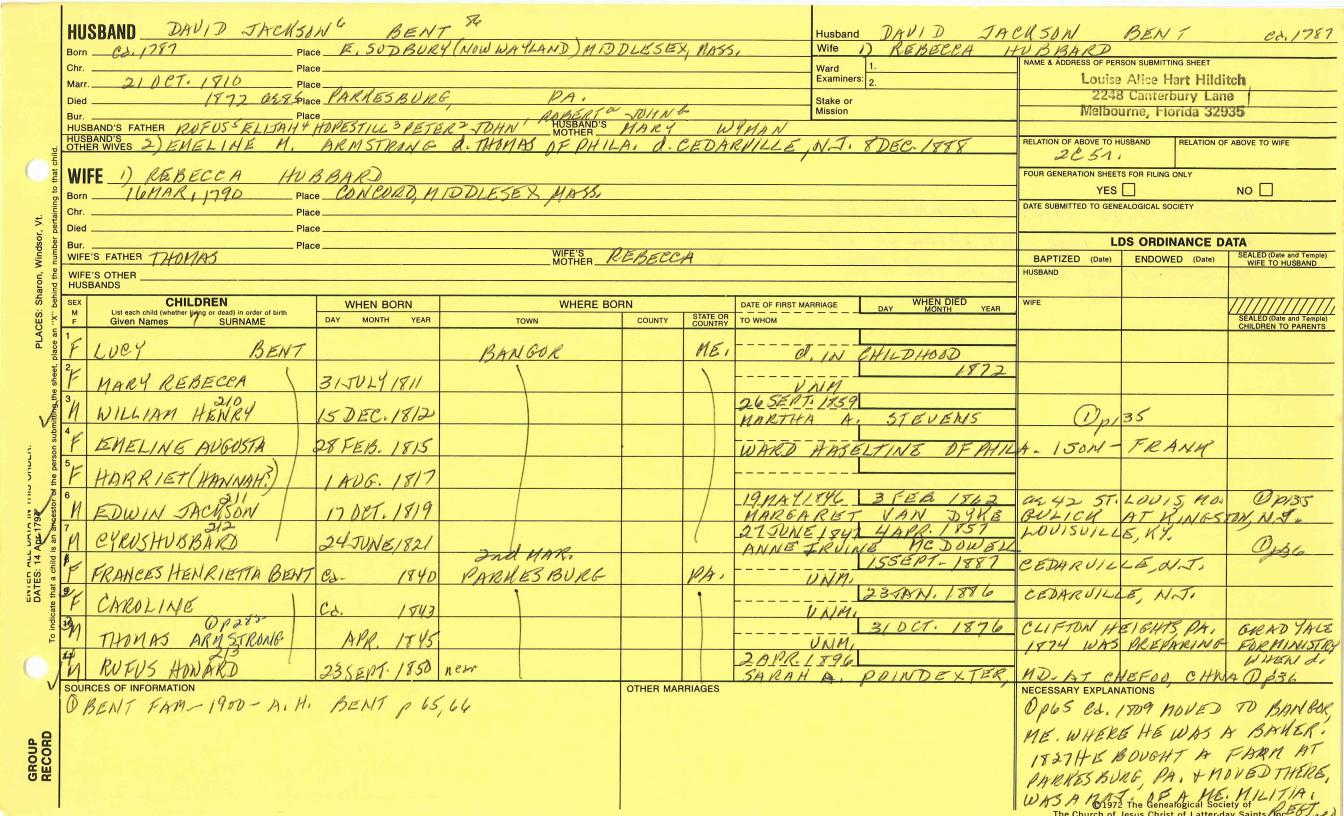 HUSBAND DAVID JACKSON 6 BENT 56
Born ca. 1787 Place E. SUDBURY (NOW WAYLAND) MIDDLESEX, MASS.
Chr. Place
Marr. 21 OCT. 1810 Place
Died 1872 Place PARKESBURG, PA.
Bur. Place ROBERT a JOHN b
HUSBAND'S FATHER RUFUS 5 ELIJAH 4 HOPESTILL 3 PETER 2 JOHN 1 HUSBAND'S MOTHER MARY WYMAN
HUSBAND'S OTHER WIVES 2) EMELINE M. ARMSTRONG d. THOMAS OF PHILA. d. CEDARVILLE, N.J. 8 DEC. 1888
WIFE 1) REBECCA HUBBARD
Born 16 MAR. 1790 Place CONCORD, MIDDLESEX MASS.
Chr. Place
Died Place
Bur. Place
WIFE'S FATHER THOMAS WIFE'S MOTHER REBECCA
WIFE'S OTHER HUSBANDS
Husband DAVID JACKSON BENT ca. 1787
Wife 1) REBECCA HUBBARD
Ward Examiners: 1. 2.
Stake or Mission
NAME & ADDRESS OF PERSON SUBMITTING SHEET
Louise Alice Hart Hilditch
2248 Canterbury Lane
Melbourne, Florida 32935
RELATION OF ABOVE TO HUSBAND RELATION OF ABOVE TO WIFE
2C 5r.
FOUR GENERATION SHEETS FOR FILING ONLY
YES NO
DATE SUBMITTED TO GENEALOGICAL SOCIETY
LDS ORDINANCE DATA
BAPTIZED (Date) ENDOWED (Date) SEALED (Date and Temple) WIFE TO HUSBAND
HUSBAND
WIFE
SEALED (Date and Temple) CHILDREN TO PARENTS
SEX M F CHILDREN WHEN BORN WHERE BORN DATE OF FIRST MARRIAGE WHEN DIED
List each child (whether living or dead) in order of birth
Given Names SURNAME DAY MONTH YEAR TOWN COUNTY STATE OR COUNTRY TO WHOM DAY MONTH YEAR
1 F LUCY BENT BANGOR ME. d. IN CHILDHOOD
2 F MARY REBECCA 31 JULY 1811 UNM 1872
3 M WILLIAM HENRY 210 15 DEC. 1812 26 SEPT. 1839 MARTHA A. STEVENS ① p135
4 F EMELINE AUGUSTA 28 FEB. 1815 WARD HASELTINE OF PHILA. - 1 SON - FRANK
5 F HARRIET (HANNAH?) 1 AUG. 1817
6 M EDWIN JACKSON 211 17 OCT. 1819 19 MAY 1846 3 FEB 1862 MARGARET VAN DYKE ae. 42 ST. LOUIS, MO. ① p135 GULICK AT KINGSTON, N.J.
7 M CYRUS HUBBARD 212 24 JUNE 1821 27 JUNE 4 APR. 1857 ANNE IRVINE McDOWELL LOUISVILLE, KY. ① p36
2nd MAR.
8 F FRANCES HENRIETTA BENT Ca. 1840 PARKESBURG PA. 15 SEPT. 1887 UNM. CEDARVILLE, N.J.
9 F CAROLINE Ca. 1843 23 JAN. 1886 UNM. CEDARVILLE, N.J.
10 M THOMAS ARMSTRONG APR. 1845 31 OCT. 1876 UNM. CLIFTON HEIGHTS, PA. GRAD YALE 1874 WAS PREPARING FOR MINISTRY WHEN d.
11 M RUFUS HOWARD 213 23 SEPT. 1850 near 2 APR. 1896 SARAH A. POINDEXTER, MD. AT CHEFOO, CHINA ① p36
SOURCES OF INFORMATION
① BENT FAM - 1900 - A.H. BENT p 65, 66
OTHER MARRIAGES
NECESSARY EXPLANATIONS
① p65 Ca. 1809 MOVED TO BANGOR,
ME. WHERE HE WAS A BAKER.
1827 HE BOUGHT A FARM AT
PARKESBURG, PA. & MOVED THERE,
WAS A MAJ. OF A ME. MILITIA.
REGT.
©1972 The Genealogical Society of
The Church of Jesus Christ of Latter-day Saints, Inc.
PLACES: Sharon, Windsor, Vt.
ENTER ALL DATA IN THIS ORDER:
DATES: 14 Apr 1794
To indicate that a child is an ancestor of the person submitting the sheet, place an "X" behind the number pertaining to that child.
GROUP RECORD